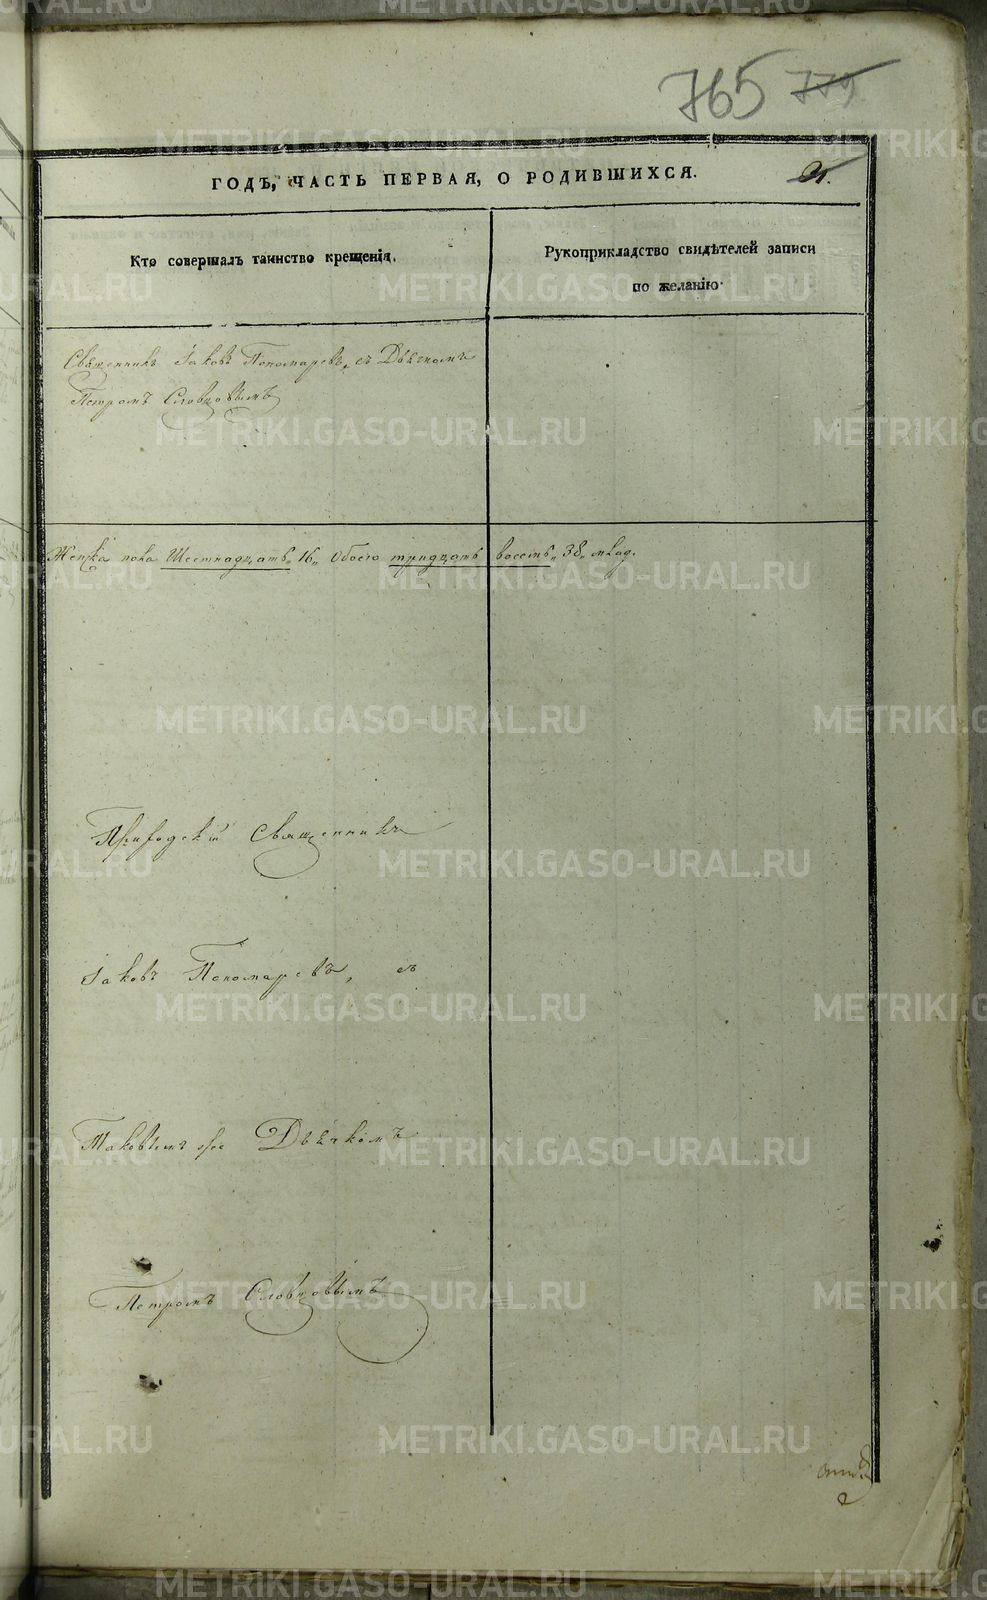 765 779
ГОДЪ, ЧАСТЬ ПЕРВАЯ, О РОДИВШИХСЯ.
Кто совершалъ таинство крещенія.
Рукоприкладство свидѣтелей записи
по желанію.
Священникъ Іаковъ Пономаревъ, съ Дьячкомъ
Петромъ Словцовымъ
Женска пола Шестнадцать 16, Обоего тридцать восемь 38, млад.
Приходскій Священникъ
Іаковъ Пономаревъ, съ
Таковымъ же Дьячкомъ
Петромъ Словцовымъ
METRIKI.GASO-URAL.RU